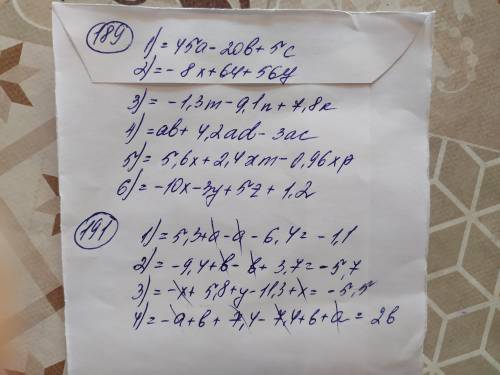 189
1) = 45a - 20b + 5c
2) = - 8x + 64 + 56y
3) = - 1,3m - 9,1n + 7,8k
4) = ab + 4,2ad - 3ac
5) = 5,6x + 2,4xm - 0,96xp
6) = - 10x - 3y + 5z + 1,2
191
1) = 5,3 + a - a - 6,4 = - 1,1
2) = - 9,4 + b - b + 3,7 = - 5,7
3) = - x + 5,8 + y - 11,3 + x = - 5,5
4) = - a + b + 7,4 - 7,4 + b + a = 2b